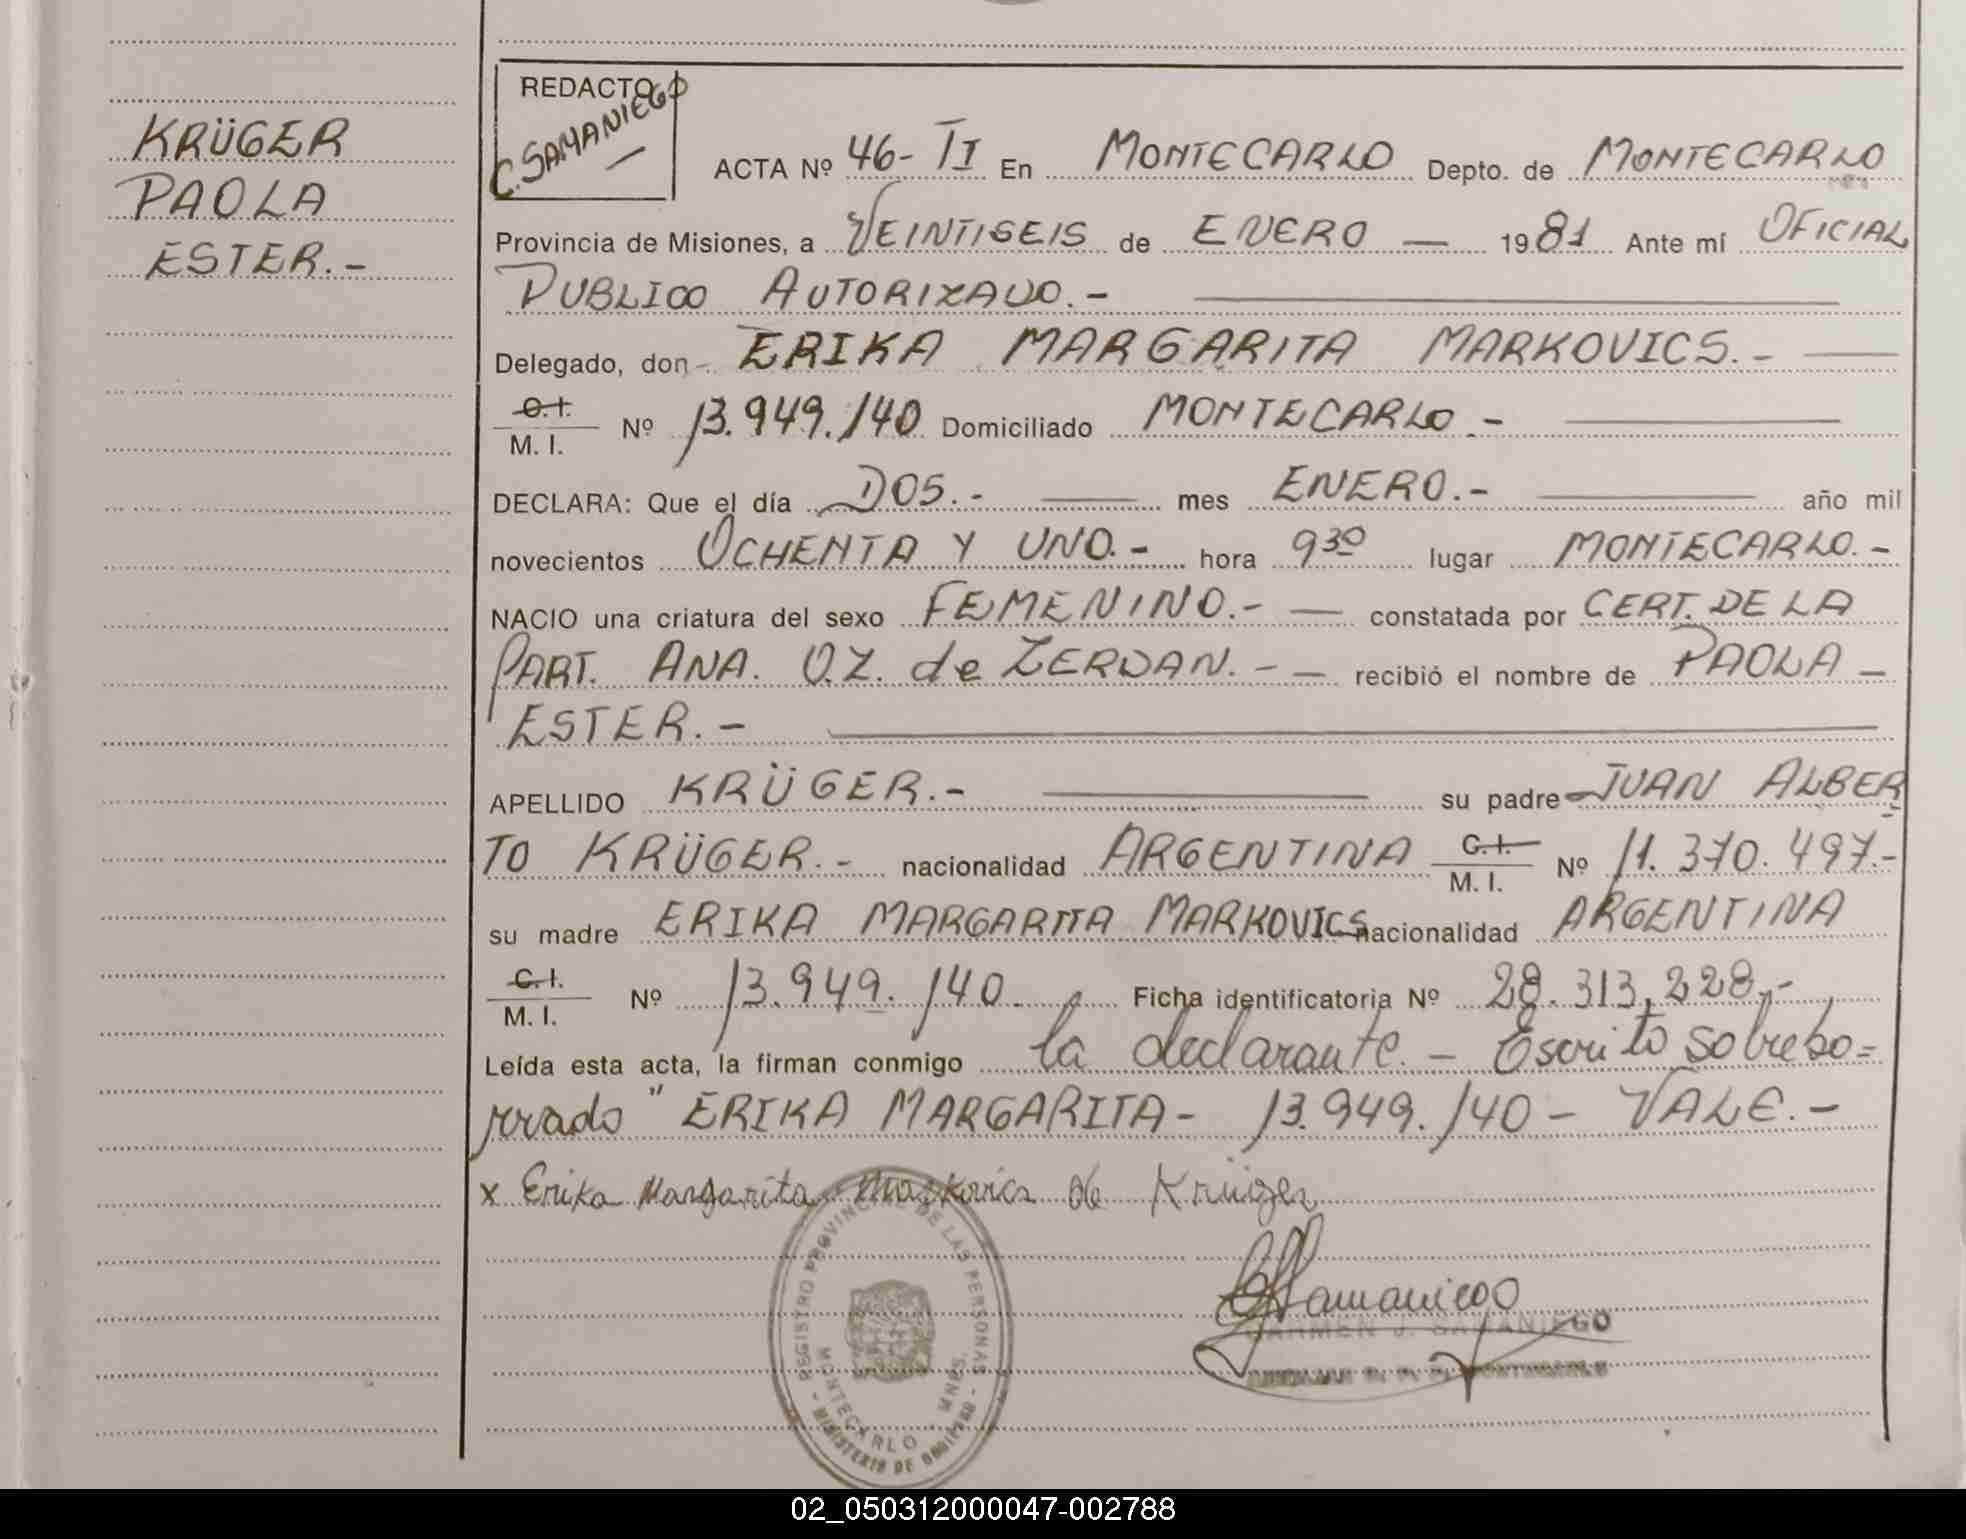 KRÜGER
PAOLA
ESTER.-
REDACTO
C. SAMANIEGO
ACTA Nº 46-II En MONTECARLO Depto. de MONTECARLO
Provincia de Misiones, a VEINTISEIS de ENERO — 1981 Ante mí OFICIAL
PUBLICO AUTORIZADO.-
Delegado, don - ERIKA MARGARITA MARKOVICS.-
C.I.
M. I. Nº 13.949.140 Domiciliado MONTECARLO.-
DECLARA: Que el día DOS.- mes ENERO.- año mil
novecientos OCHENTA Y UNO.- hora 9 30 lugar MONTECARLO.-
NACIO una criatura del sexo FEMENINO.- — constatada por CERT. DE LA
PART. ANA. O.Z. de ZERDAN.- — recibió el nombre de PAOLA -
ESTER.-
APELLIDO KRÜGER.- su padre JUAN ALBER
TO KRÜGER.- nacionalidad ARGENTINA C.I.
M. I. Nº 11.370.497.-
su madre ERIKA MARGARITA MARKOVICS nacionalidad ARGENTINA
C.I.
M. I. Nº 13.949.140. Ficha identificatoria Nº 28.313,228.-
Leída esta acta, la firman conmigo la declarante. - Escrito sobrebo=
rrado " ERIKA MARGARITA - 13.949.140 - VALE.-
x Erika Margarita Markovics de Krüger
Samaniego
CARMEN J. SAMANIEGO
REGISTRO PROVINCIAL DE LAS PERSONAS
MONTECARLO - MNES.
MINISTERIO DE
02_050312000047-002788